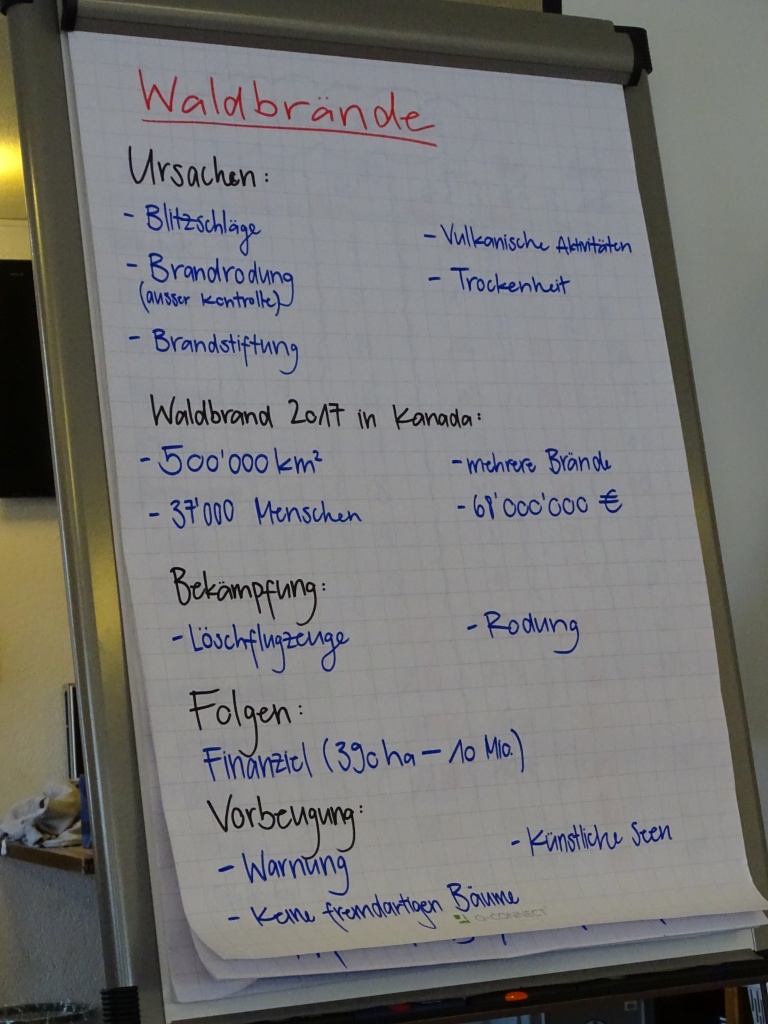 Waldbrände
Ursachen:
- Blitzschläge
- Vulkanische Aktivitäten
- Brandrodung
(ausser Kontrolle)
- Trockenheit
- Brandstiftung
Waldbrand 2017 in Kanada:
- 500'000 km²
- mehrere Brände
- 37'000 Menschen
- 68'000'000 €
Bekämpfung:
- Löschflugzeuge
- Rodung
Folgen:
Finanziel (390ha – 10 Mio.)
Vorbeugung:
- Warnung
- Künstliche Seen
- Keine fremdartigen Bäume
Q-CONNECT